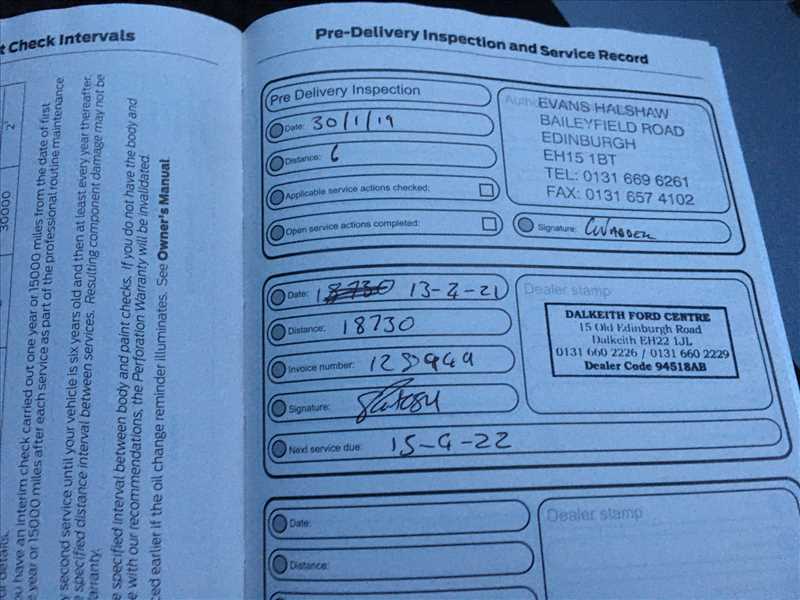 t Check Intervals
2
30000
r details.
ou have an interim check carried out one year or 15000 miles from the date of first
year or 15000 miles after each service as part of the professional routine maintenance
y second service until your vehicle is six years old and then at least every year thereafter.
e specified distance interval between services. Resulting component damage may not be
arranty.
e specified interval between body and paint checks. If you do not have the body and
e with our recommendations, the Perforation Warranty will be invalidated.
ced earlier if the oil change reminder illuminates. See Owner's Manual
Pre-Delivery Inspection and Service Record
Pre Delivery Inspection
Date: 30/1/19
Distance: 6
Applicable service actions checked:
Open service actions completed:
EVANS HALSHAW
BAILEYFIELD ROAD
EDINBURGH
EH15 1BT
TEL: 0131 669 6261
FAX: 0131 657 4102
Signature:
Date: 18730 13-4-21
Distance: 18730
Invoice number:
Signature:
Next service due: 15-4-22
Dealer stamp
DALKEITH FORD CENTRE
15 Old Edinburgh Road
Dalkeith EH22 1JL
0131 660 2226 / 0131 660 2229
Dealer Code 94518AB
Date:
Distance:
Dealer stamp